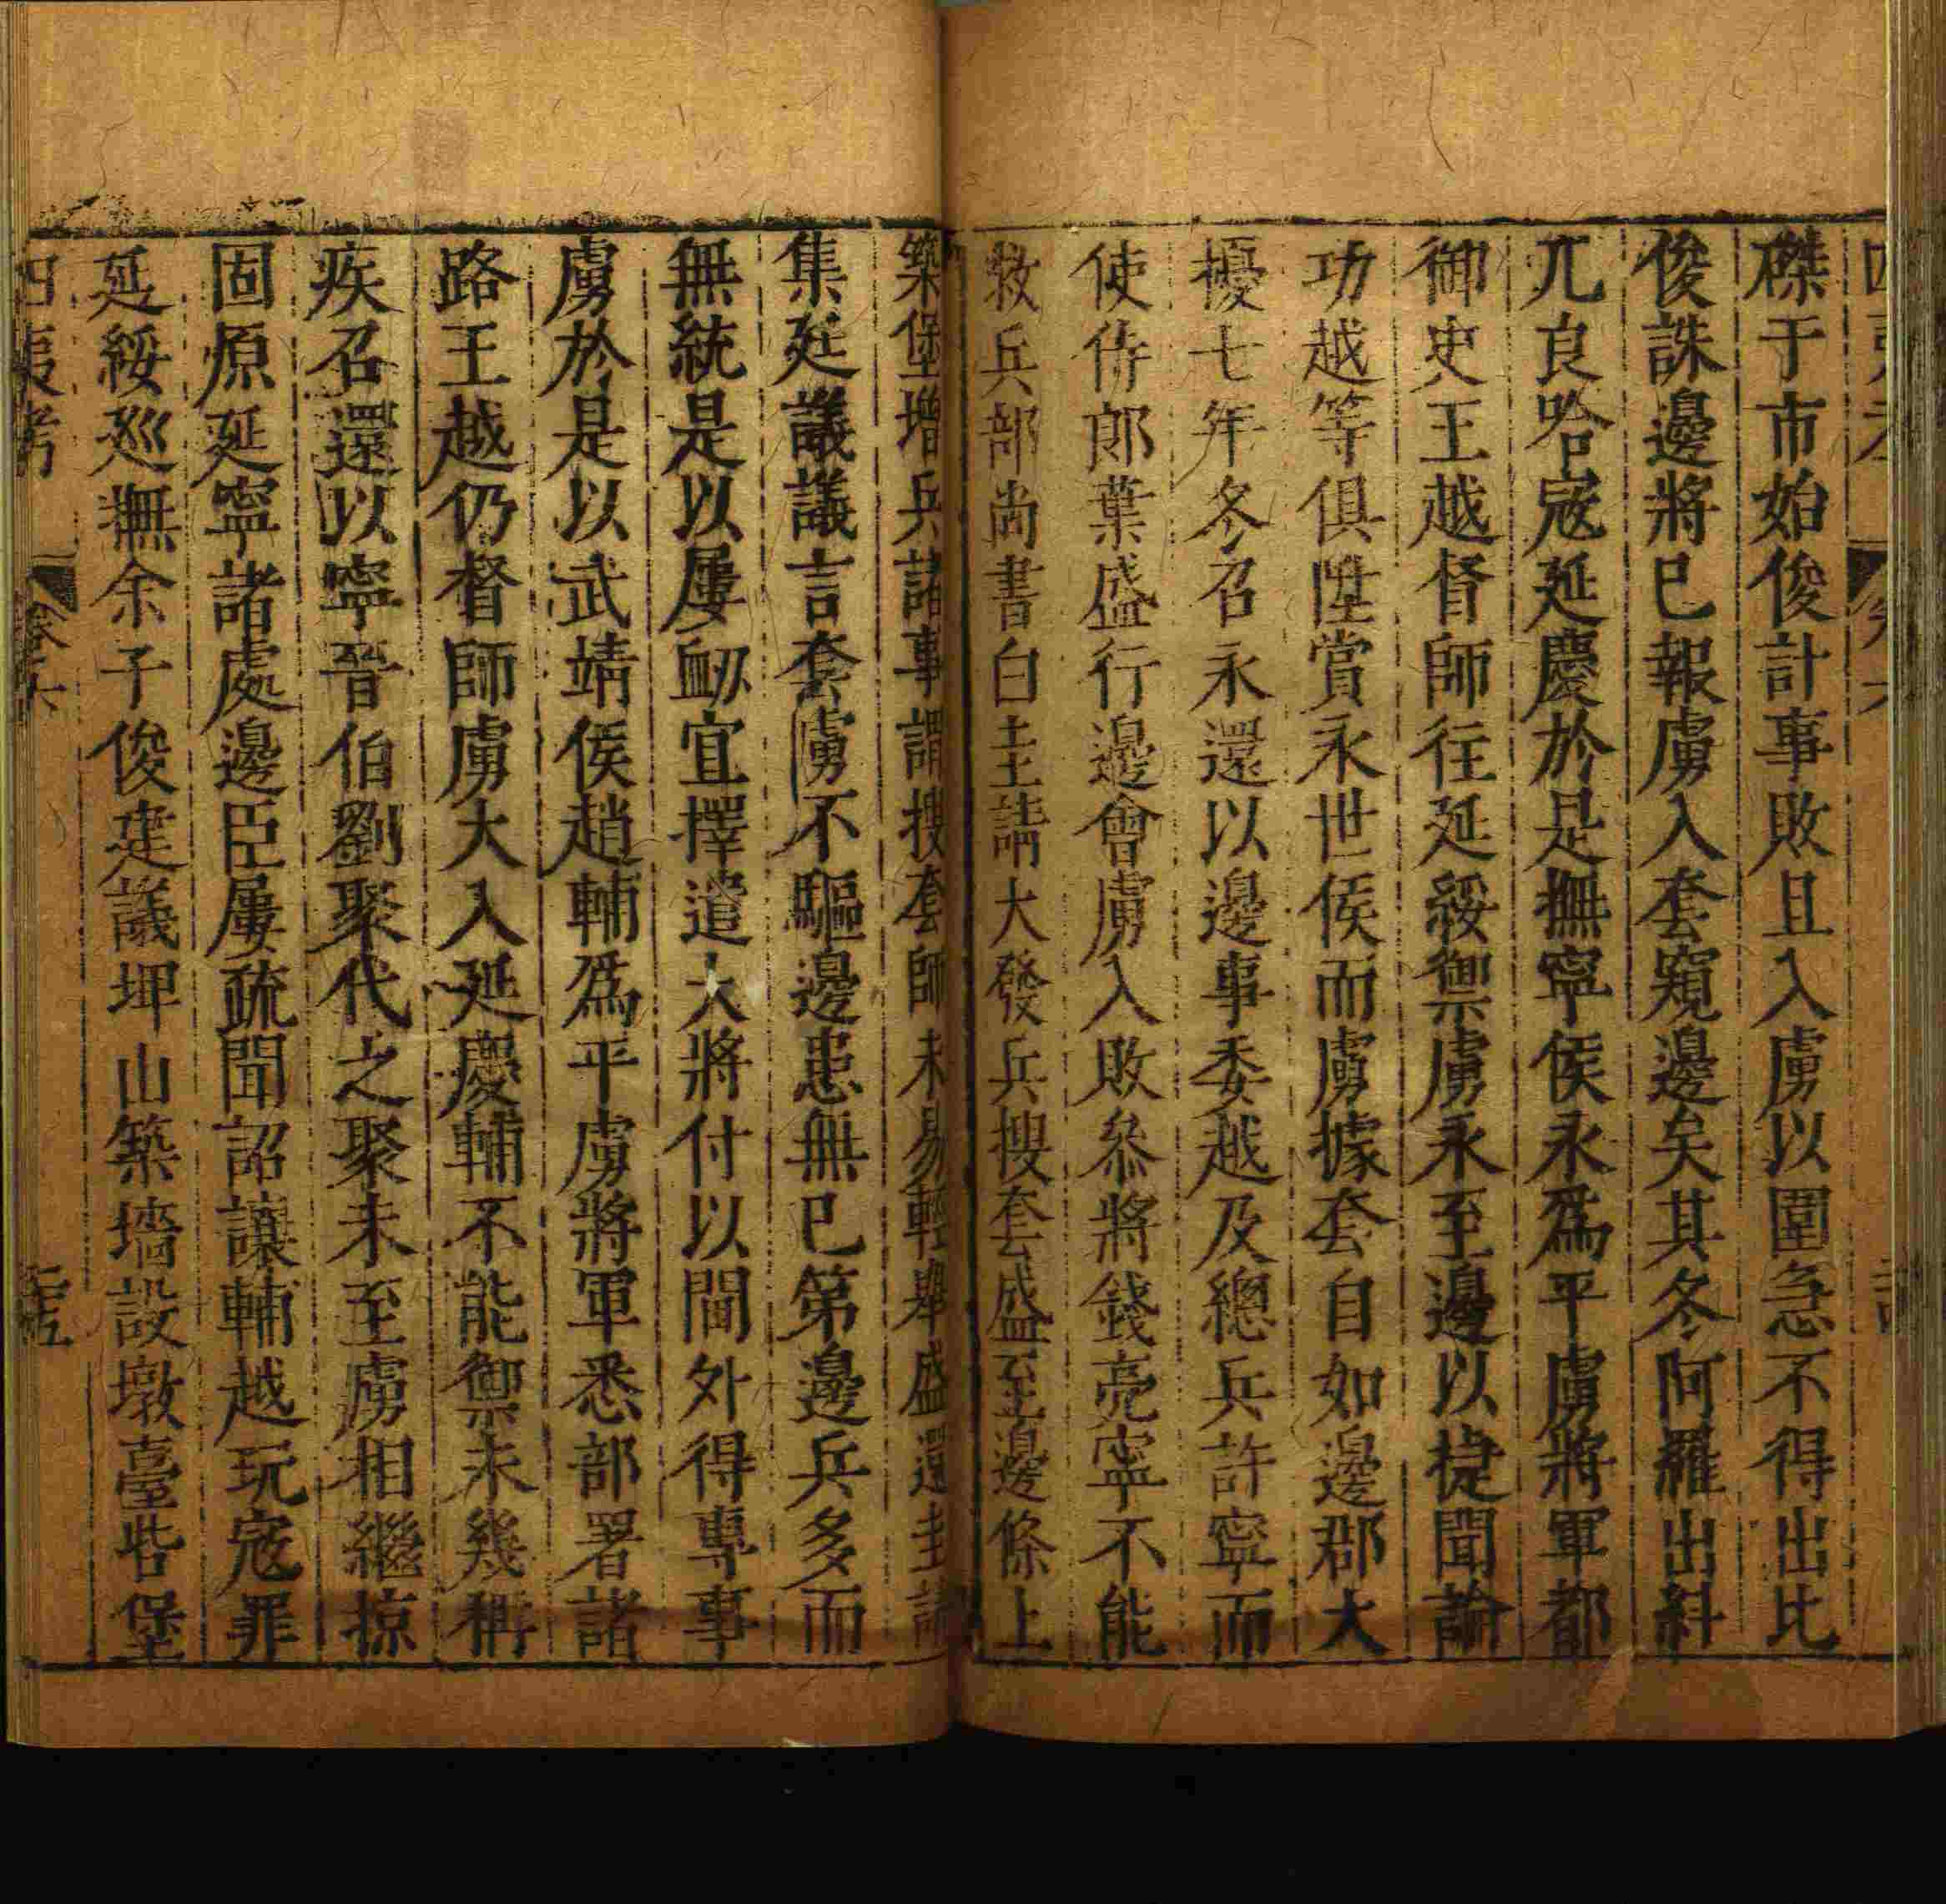 磔于市始俊計事敗且入虜以圍急不得出比
俊誅邊將巳報虜入套窺邊矣其冬阿羅出糾
兀良哈寇延慶於是撫寧侯永爲平虜將軍都
御史王越督師往延綏禦虜永至邊以捷聞論
功越等俱陞賞永世侯而虜據套自如邊郡大
擾七年冬召永還以邊事委越及總兵許寧而
使侍郎葉盛行邊會虜入敗叅將錢亮寧不能
救兵部尚書白圭請大發兵搜套盛至邊條上
築堡增兵諸事謂搜套師未易輕舉盛還圭請
集廷議議言套虜不驅邊患無巳第邊兵多而
無統是以屢衂宜擇遣大將付以閫外得專事
虜於是以武靖侯趙輔爲平虜將軍悉部署諸
路王越仍督師虜大入延慶輔不能禦未幾稱
疾召還以寧晉伯劉聚代之聚未至虜相繼掠
固原延寧諸處邊臣屢疏聞詔讓輔越玩寇罪
延綏巡撫余子俊建議埤山築墻設墩臺砦堡
四夷考 卷六